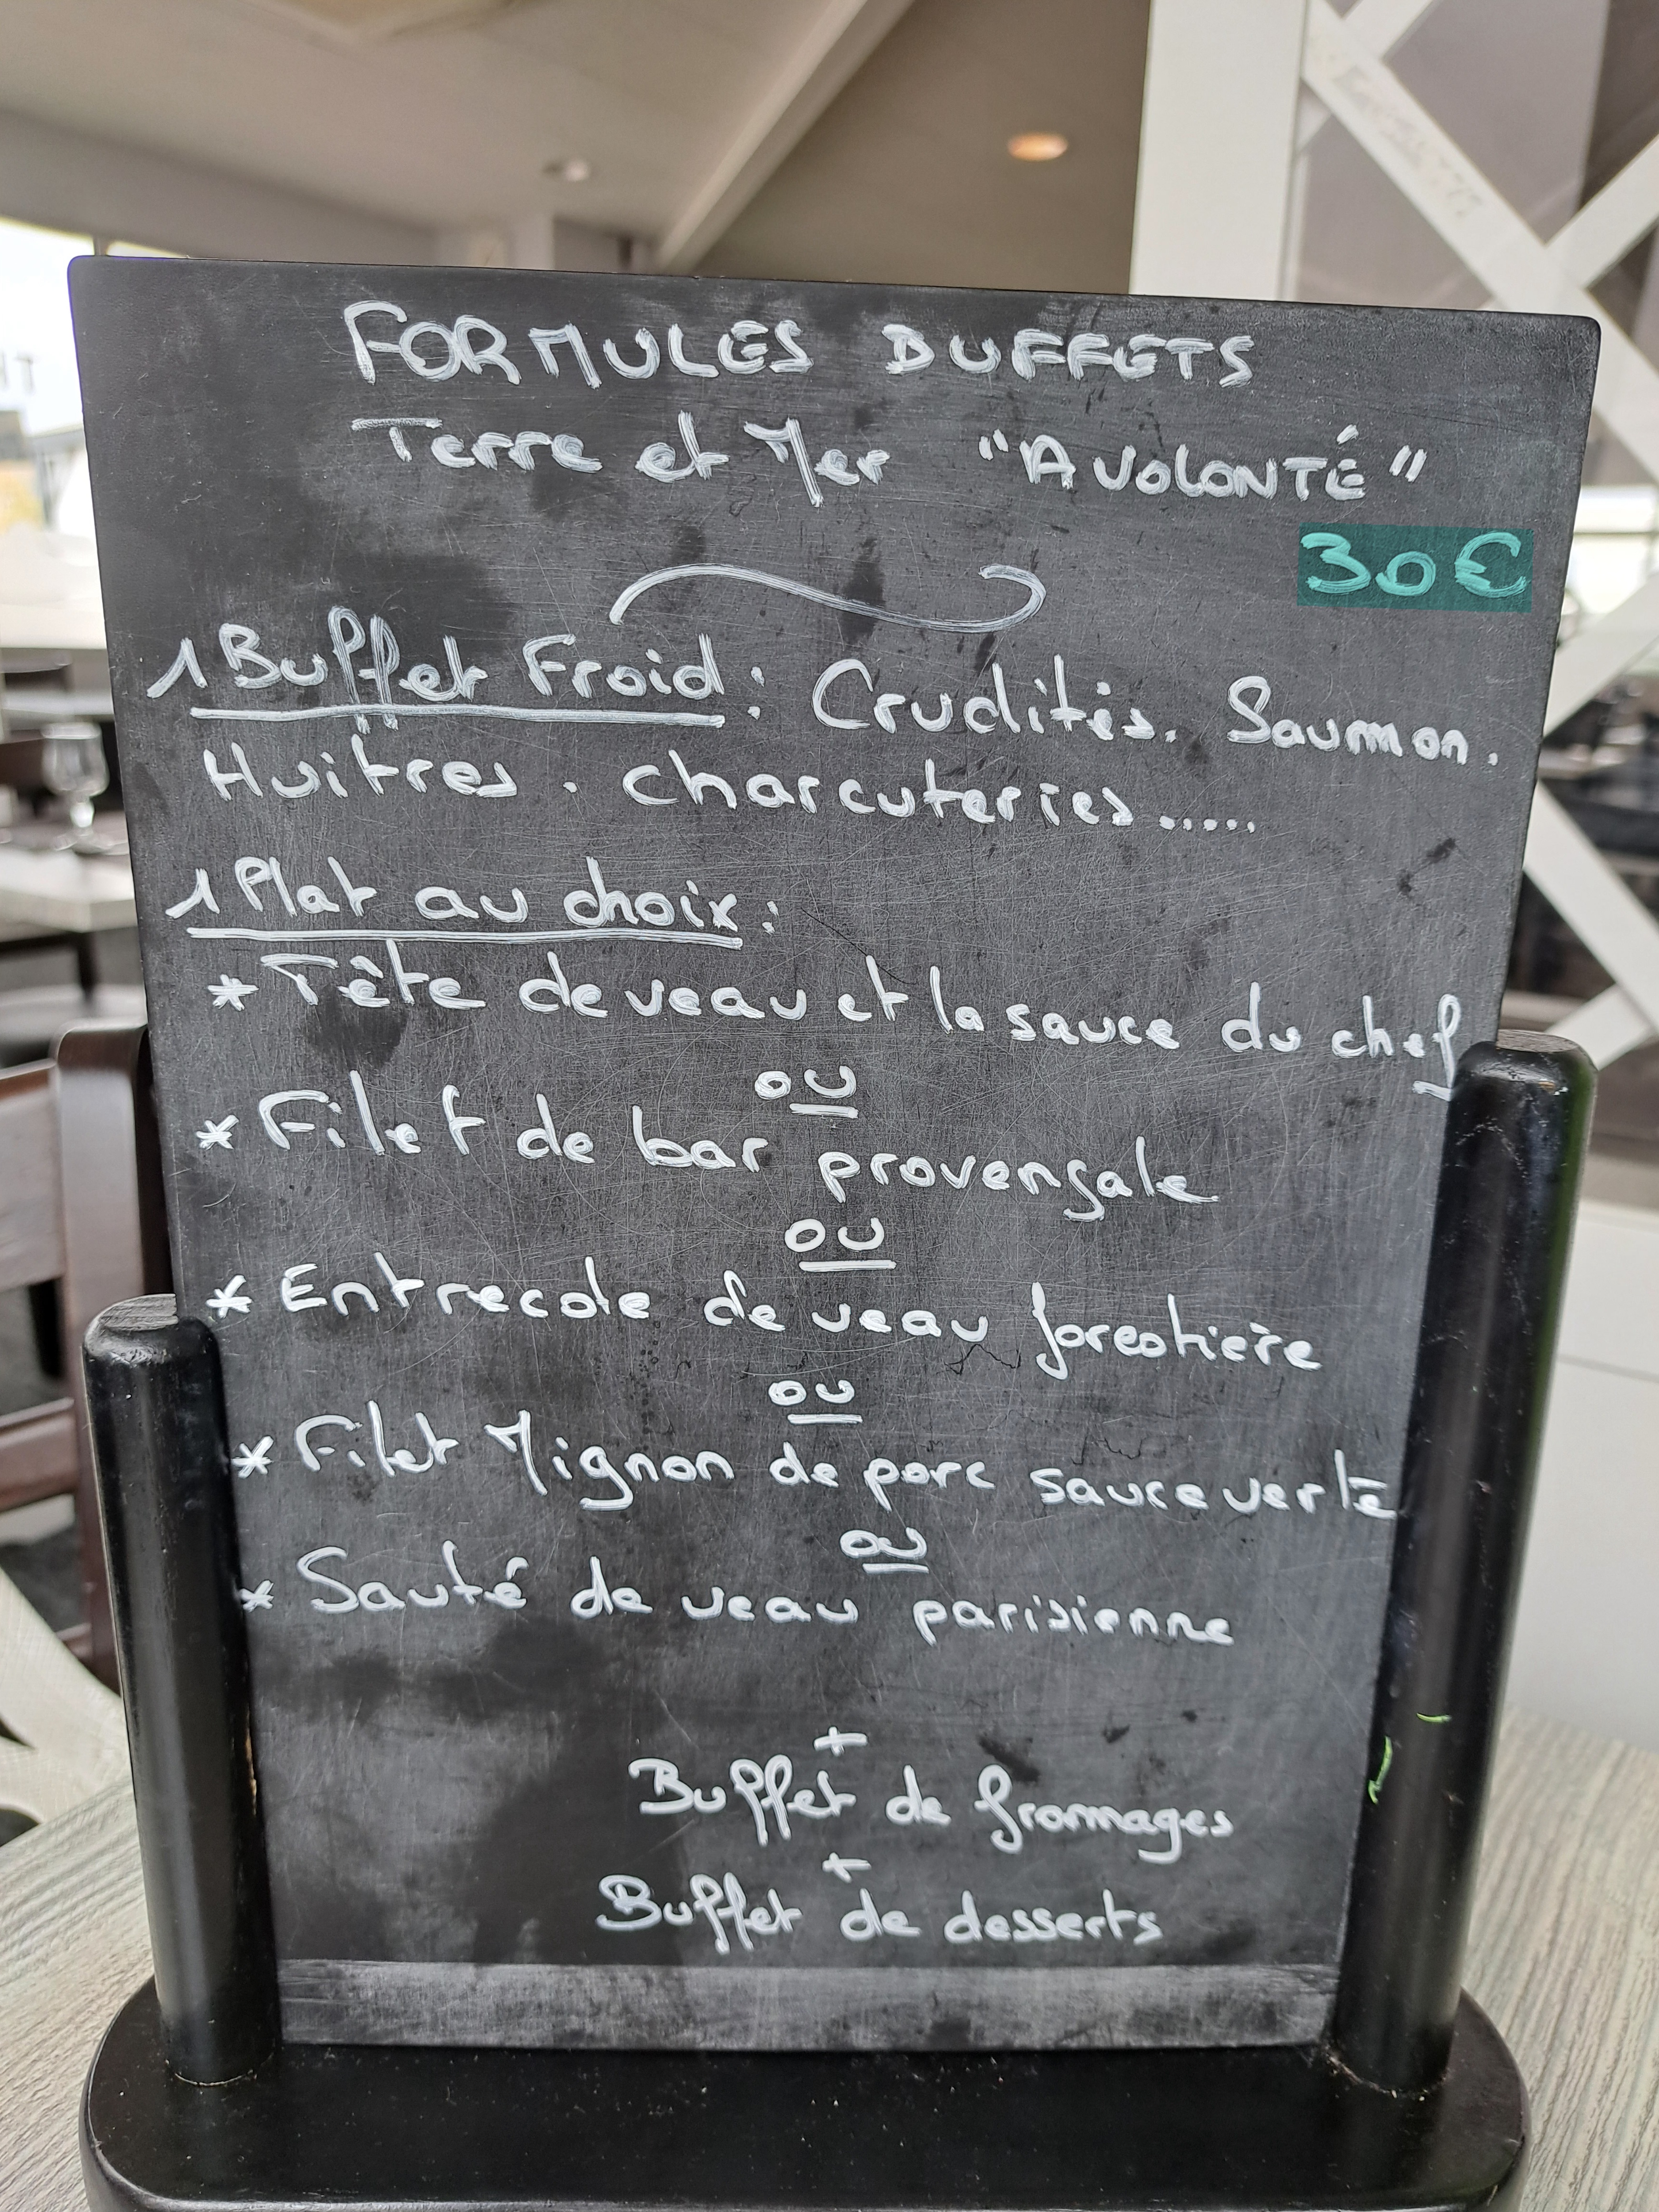 FORMULES BUFFETS
Terre et Mer "A VOLONTÉ"
30€
1 Buffet Froid : Crudités. Saumon.
Huitres. charcuteries.....
1 Plat au choix :
* Tête de veau et la sauce du chef
ou
* Filet de bar provençale
ou
* Entrecote de veau forestière
ou
* Filet Mignon de porc sauce verte
ou
* Sauté de veau parisienne
+
Buffet de fromages
+
Buffet de desserts